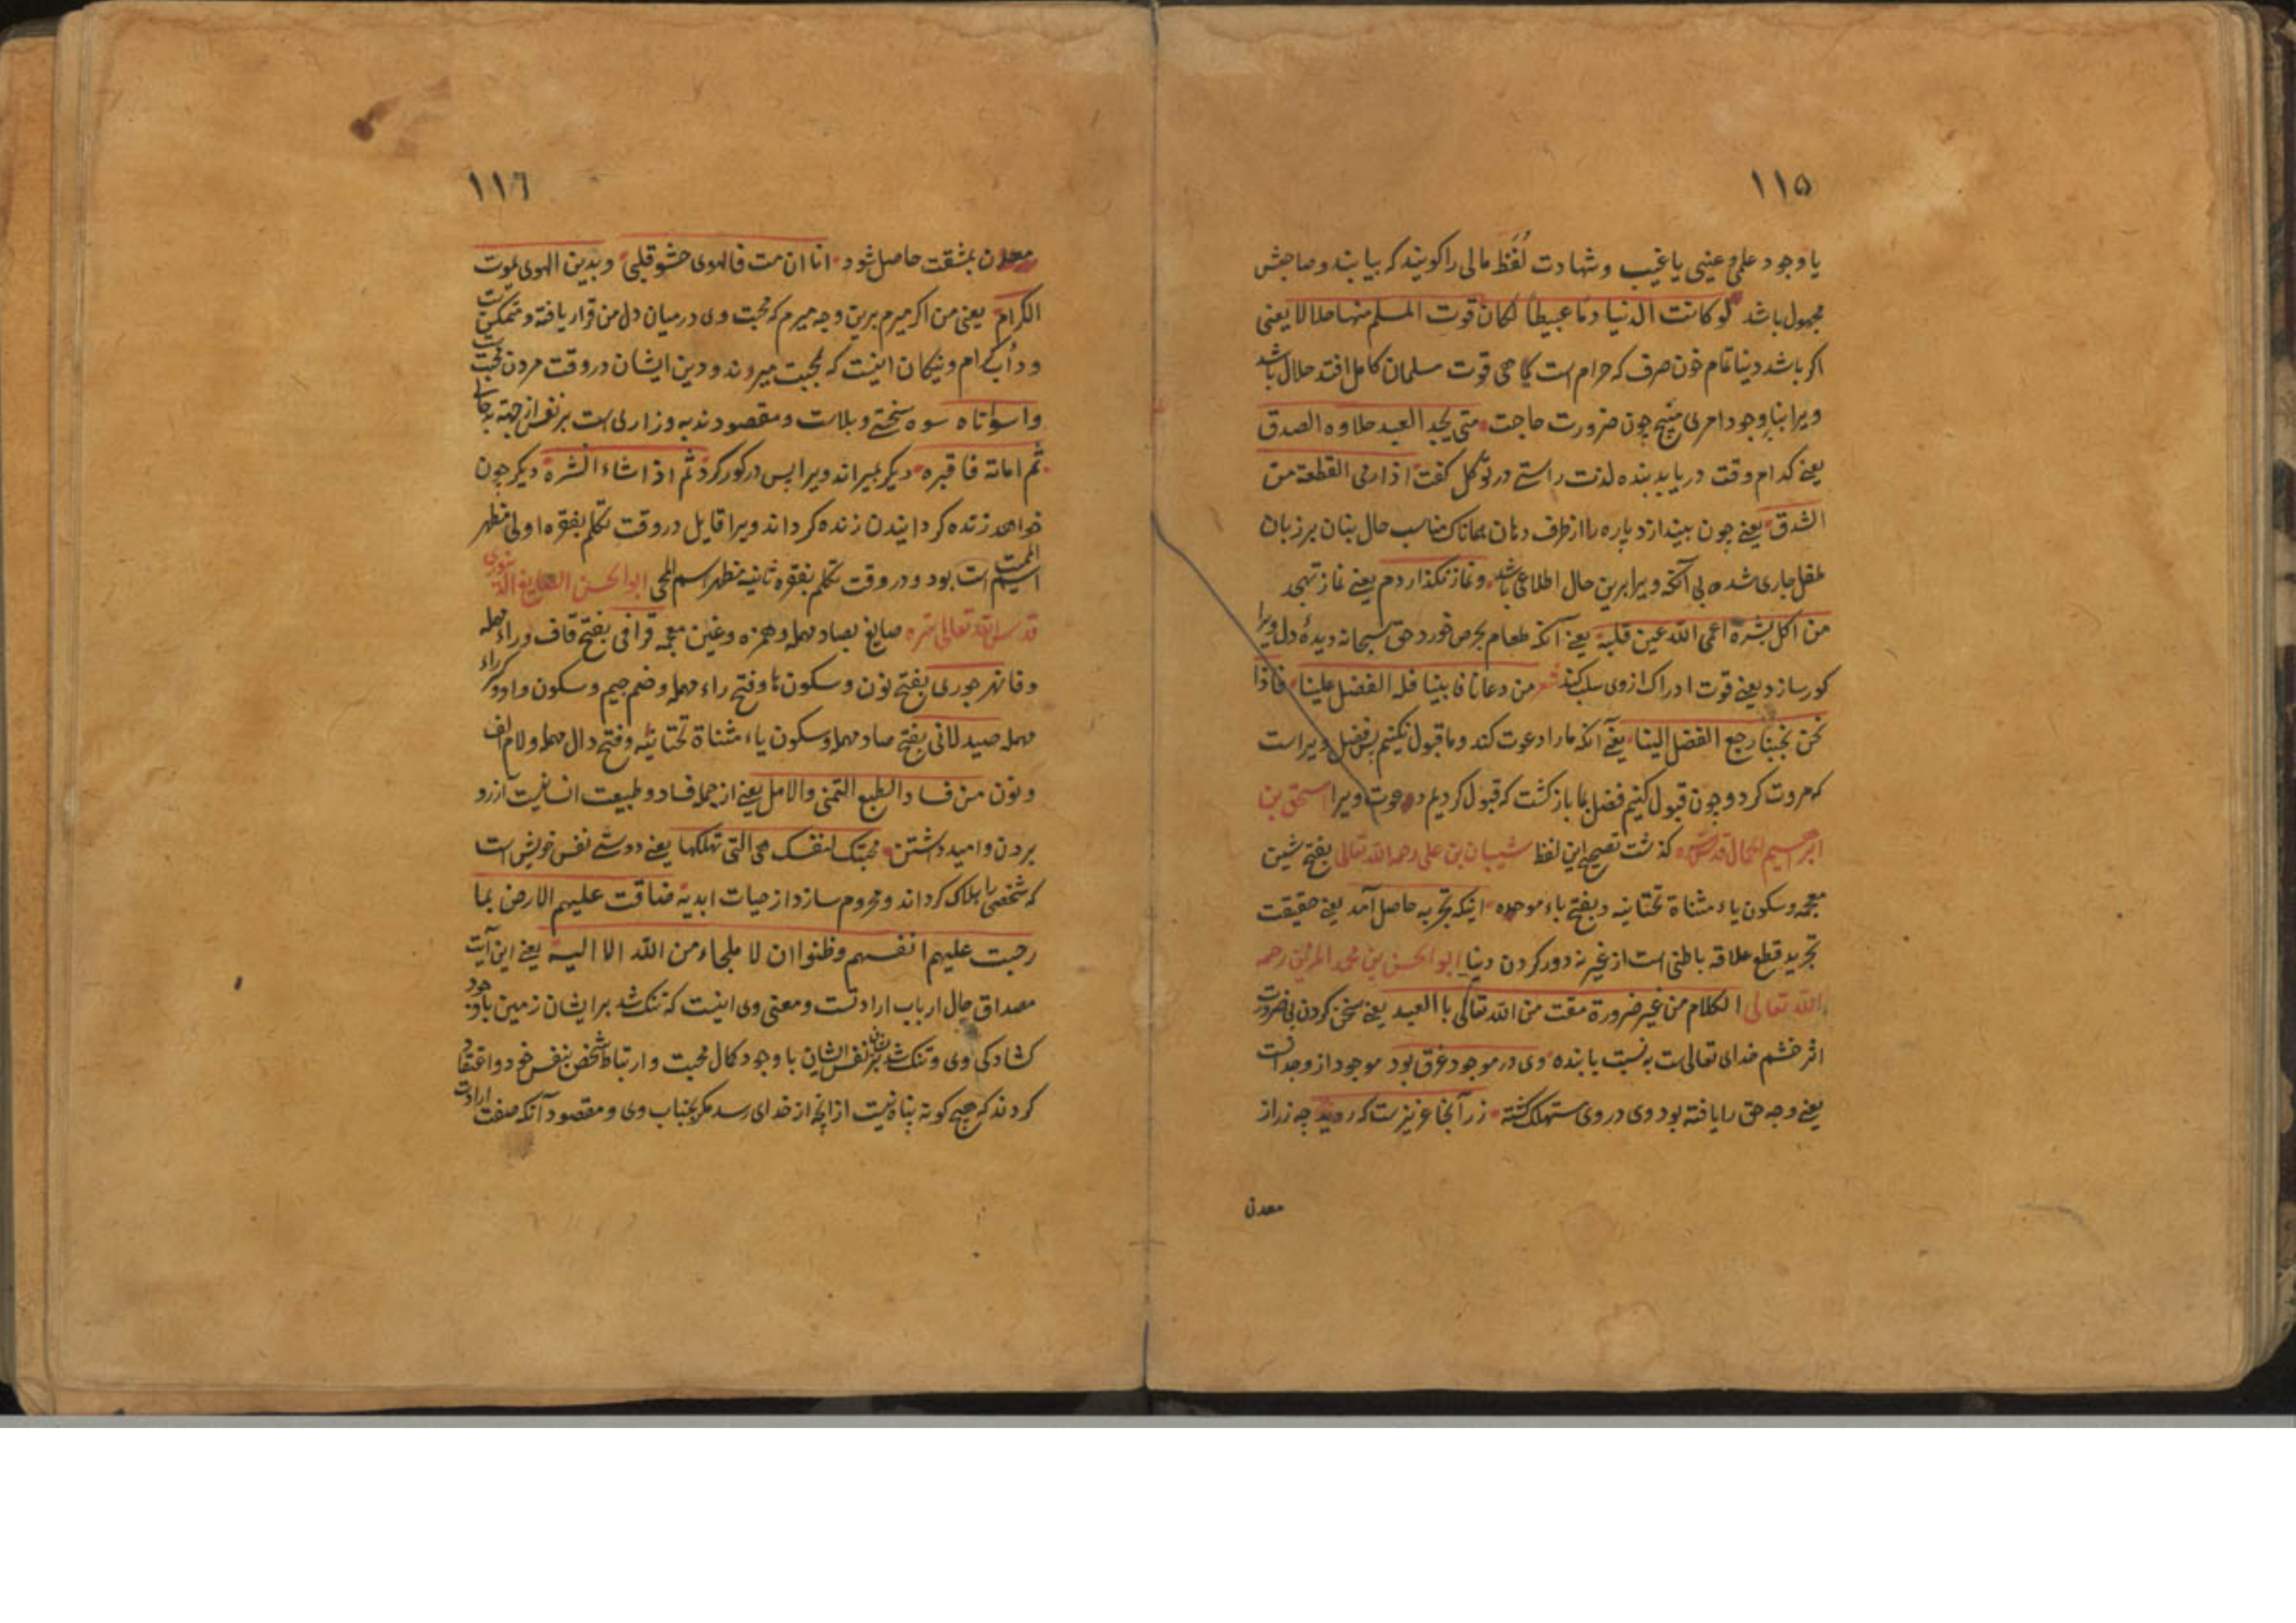 ١١٥
یا وجود علمی و عینی یا غیب و شهادت لُقَطَ مالی را کویند که بیابند و صاحبش
مجهول باشد لو کانت الدنیا دمًا عبیطًا لکان قوت المسلم منها حلالا یعنی
اکر باشد دنیا تمام خون صرف که حرام است کماهی قوت مسلمان کامل افتد حلال باشد
ویرا بنابر وجود امری مبیح چون ضرورت حاجت متی یجد العبد حلاوه الصدق
یعنے کدام وقت دریابد بنده لذت راستے در توکل کفت اذا رمی القطعة من
الشدق یعنے چون بیندازد پاره را از طرف دهان همانا که مناسب حال بنان بر زبان
طفل جاری شده بی آنکه ویرا برین حال اطلاعی باشد و نماز نکذاردم یعنے نماز تهجد
من اکل بشره اعمی الله عین قلبه یعنے آنکه طعام بحرص خورد حق سبحانه دیدهٔ دل ویرا
کور سازد یعنے قوت ادراک از وی سلب کند شعر من دعانا فابینا فله الفضل علینا فاذا
نحن بجبنا رجع الفضل الینا یعنے آنکه ما را دعوت کند و ما قبول نکنیم پس فضل ویراست
که مروت کرد و چون قبول کنیم فضل بما بازکشت که قبول کردیم دعوت ویرا اسحق بن
ابرهیم الحمال قدس سره کذشت تصحیح این لفظ شیبان بن علی رحمه الله تعالی بفتح شین
معجمه و سکون یاء مثناة تحتانیه و بفتح باء موحده اینکه تجربه حاصل آمد یعنے حقیقت
تجرید قطع علاقه باطنی است از غیر نه دور کردن دنیا ابو الحسن بن محمد المزنی رحمه
الله تعالی الکلام من غیر ضرورة مقت من الله تعالی با العبد یعنے سخن کردن بی ضرورت
اثر خشم خدای تعالی است به نسبت با بنده وی در موجود غرق بود موجود از وجدانست
یعنے وجه حق را یافته بود وی در وی مستهلک کشته زر آنجا عزیزست که روید چه زر از
معدن
١١٦
معدن بمشقت حاصل شود انا ان مت فالهوی حشو قلبی وبدین الهوی یموت
الکرام یعنی من اکر میرم برین وجه میرم که محبت وی درمیان دل من قرار یافته و متمکن است
و دأب کرام و نیکان اینست که بمحبت میروند و دین ایشان در وقت مردن محبت است
واسوأتاه سوه سختے و بلاست و مقصود ندبه و زاری است بر نفس از جهة
ثم اماته فاقبره دیکر بمیراند ویرا پس در کور کرد ثم اذا شاء انشره دیکر چون
خواهد زنده کردانیدن زنده کرداند ویرا قایل در وقت تکلم بفقره اولی مظهر
اسم الممیت است بود و در وقت تکلم بفقره ثانیه مظهر اسم المحی ابو الحسن الصایغ الدینوری
قدس الله تعالی سره صایغ بصاد مهمله و همزه و غین معجمه قرافی بفتح قاف و راء مهمله
و فا نهرجوری بفتح نون و سکون ها و فتح راء مهمله و ضم جیم و سکون واو و کسر راء
مهمله صیدلانی بفتح صاد مهمله و سکون یاء مثناة تحتانیه و فتح دال مهمله و لام الف
و نون من فساد الطبع التمنی والامل یعنے از جمله فساد و طبیعت انسانیت آرزو
بردن و امید داشتن محبتک لنفسک هی التی تهلکها یعنے دوستے نفس خویش است
که شخصی را هلاک کرداند و محروم سازد از حیات ابدیه ضاقت علیهم الارض بما
رحبت علیهم انفسهم وظنوا ان لا ملجاء من الله الا الیه یعنے این آیت
مصداق حال ارباب ارادتست و معنی وی اینست که تنک شد بر ایشان زمین باوجود
کشادکی وی و تنک شد بر ایشان نفس ایشان با وجود کمال محبت و ارتباط شخص بنفس خود و اعتقاد
کردند که هیچ کونه پناه نیست از انچه از خدای رسد مکر بجناب وی و مقصود آنکه صفت ارادت